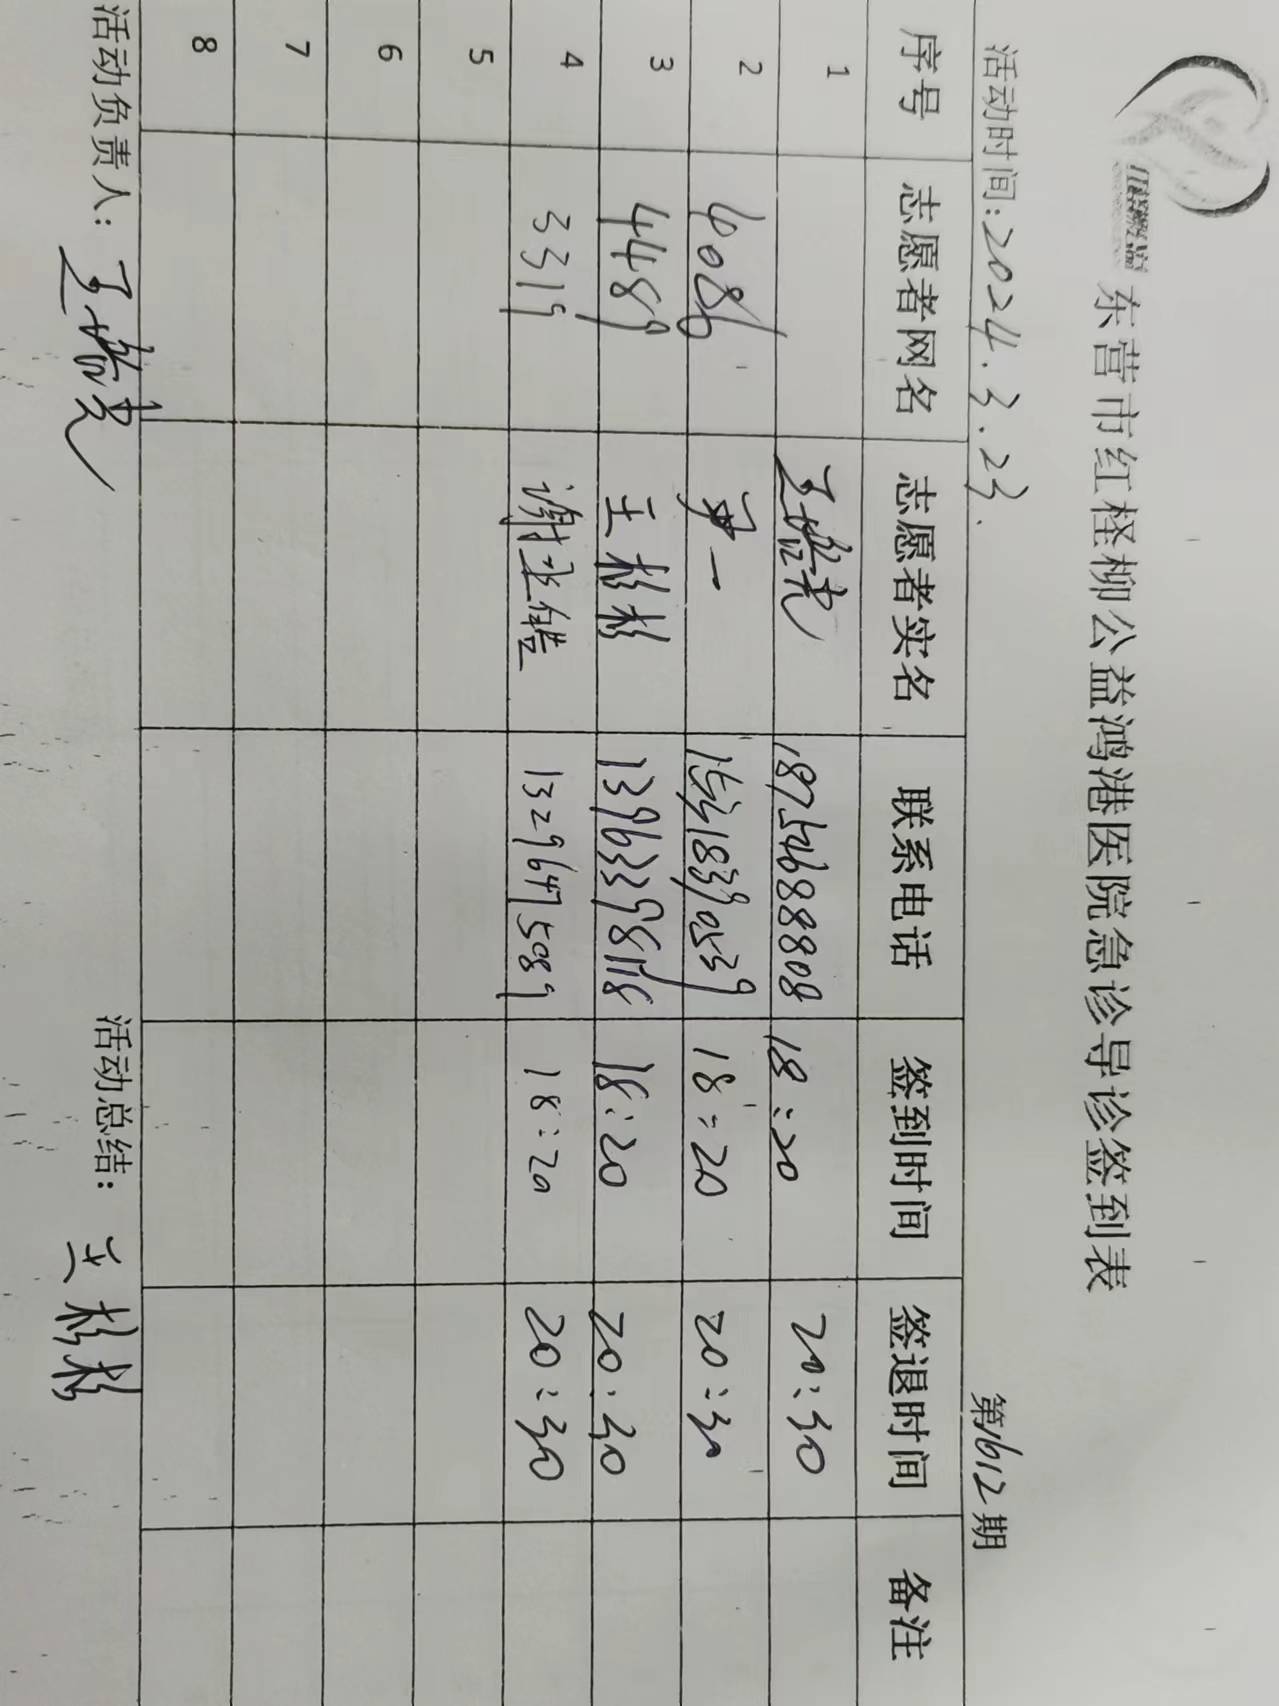 东营市红柽柳公益鸿港医院急诊导诊签到表
活动时间:2024.3.23. 第1612期
序号 志愿者网名 志愿者实名 联系电话 签到时间 签退时间 备注
1 18754688808 18:20 20:30
2 4086 尹一 15318390539 18:20 20:30
3 4489 王彬彬 13963398118 18:20 20:30
4 3319 13296475089 18:20 20:30
5
6
7
8
活动负责人: 活动总结: 王彬彬